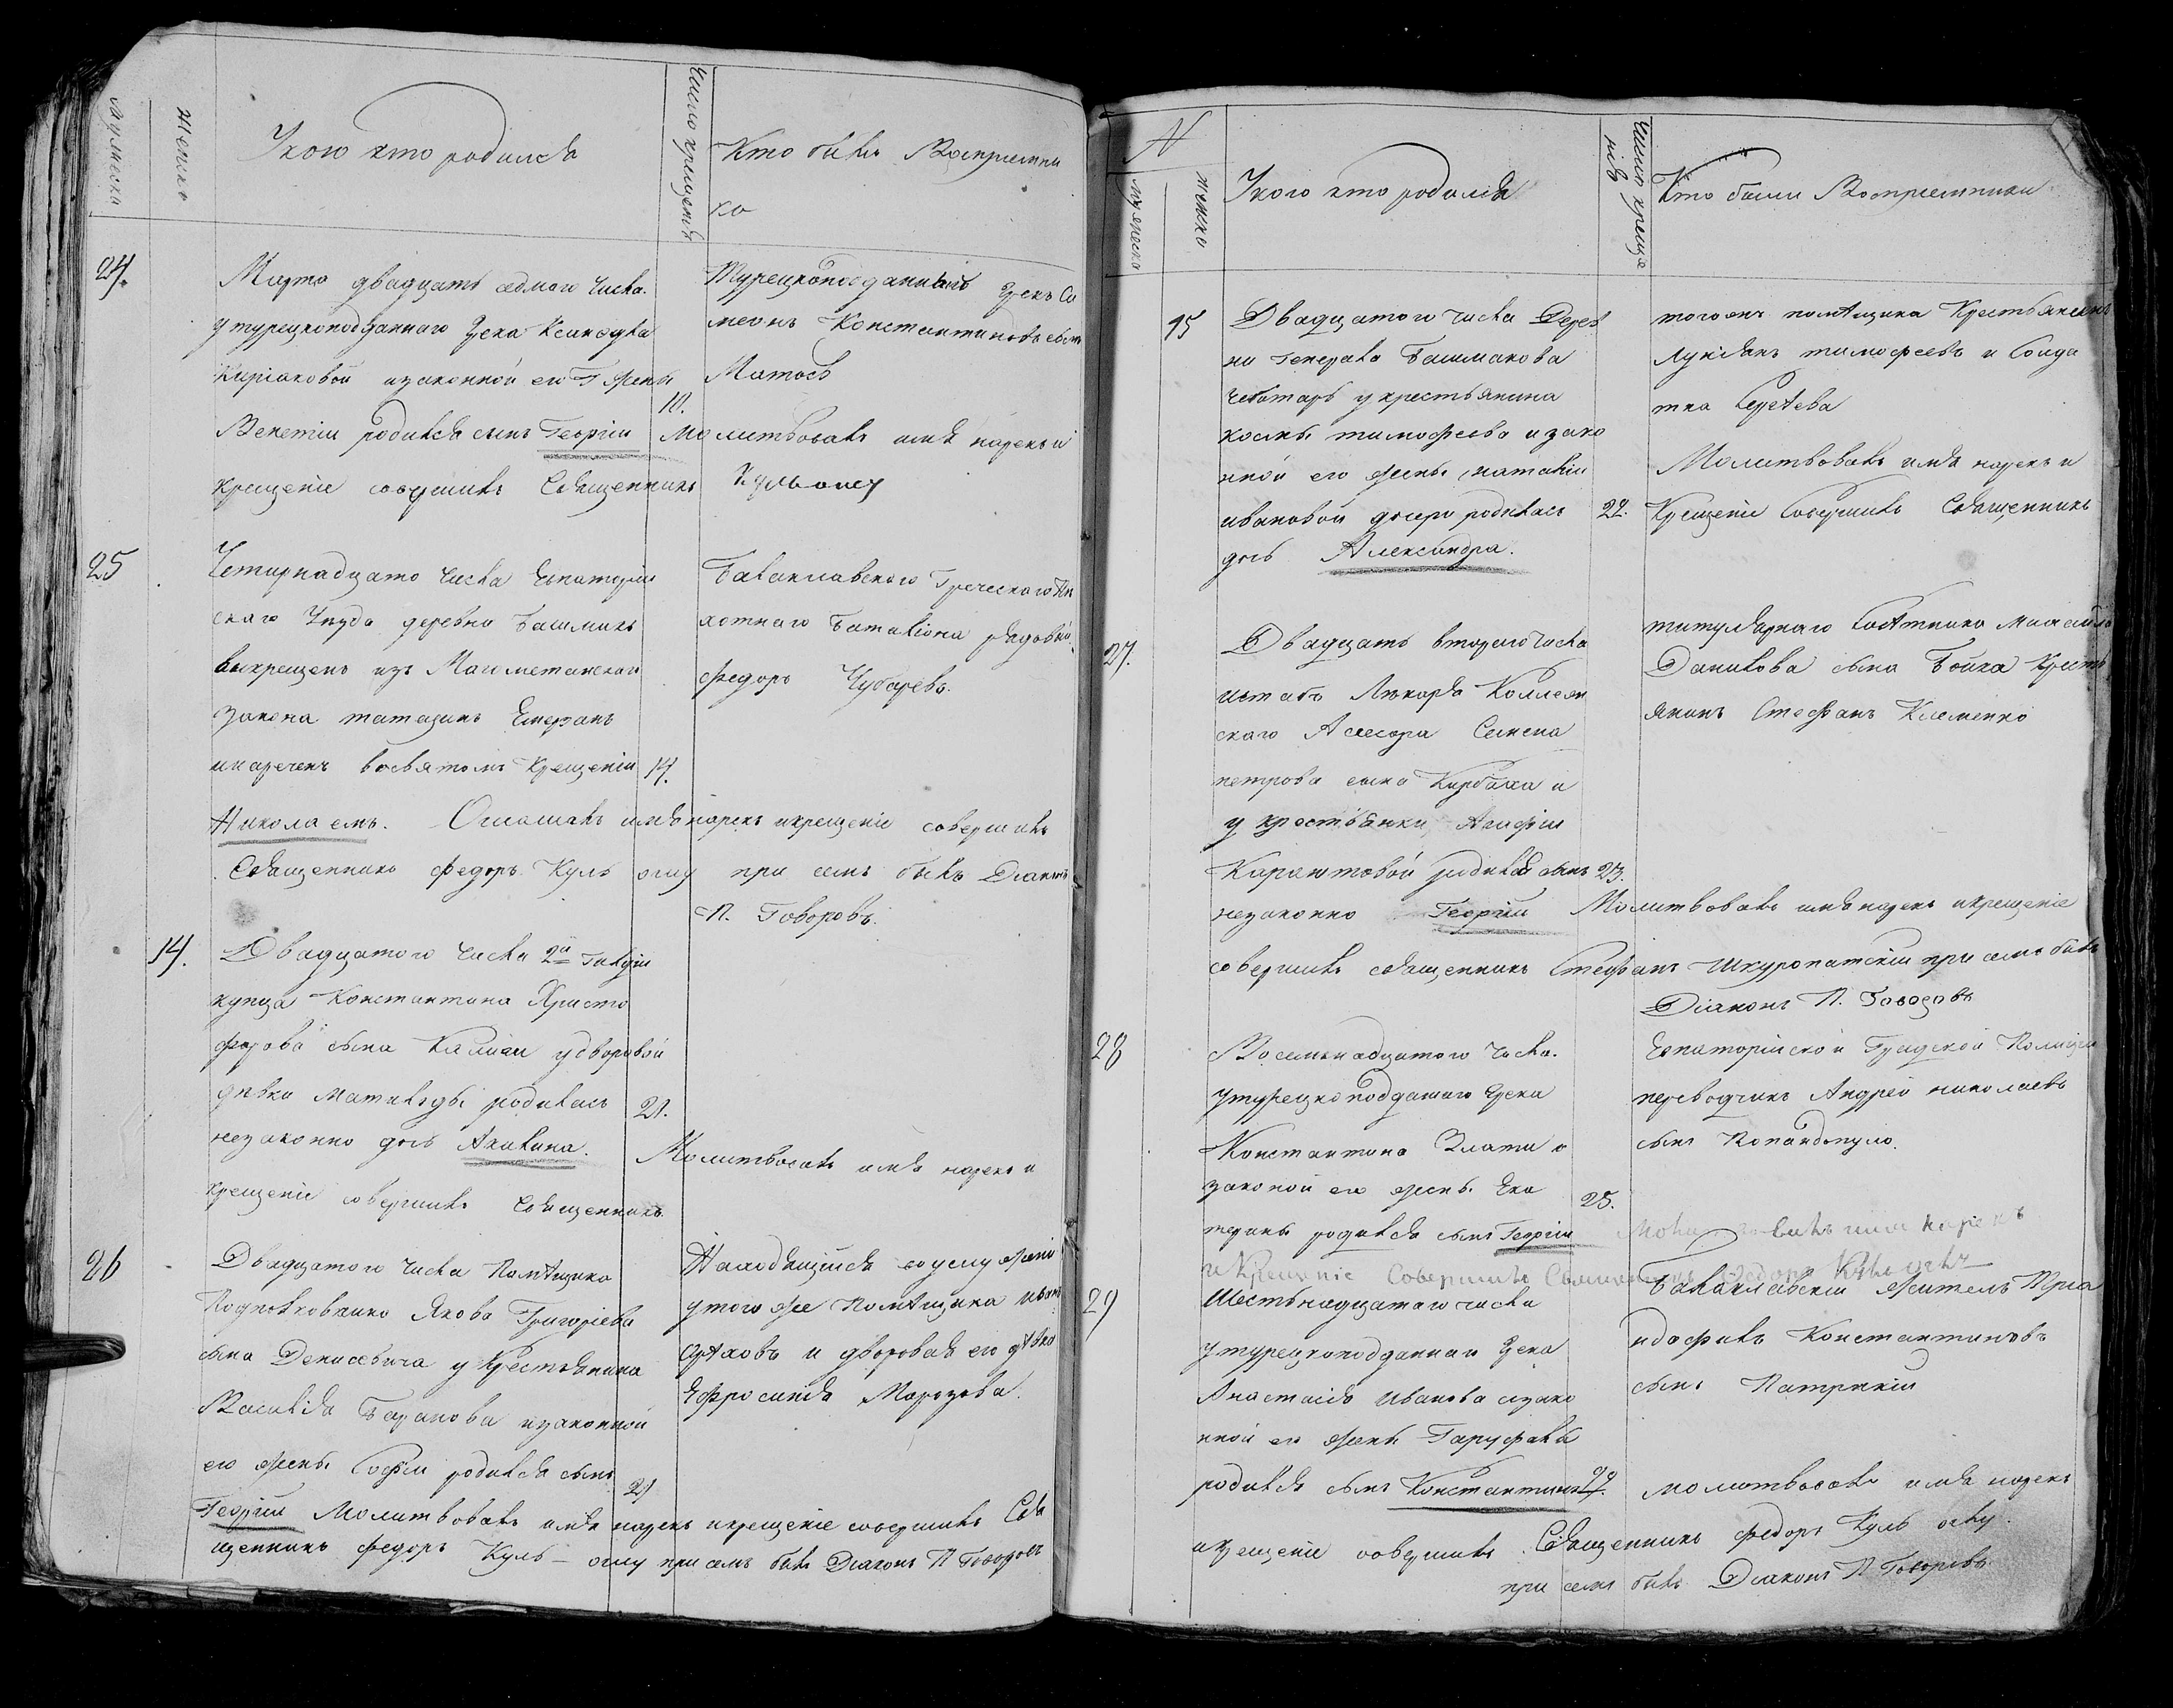 Мужеска
Женско
У кого кто родился
Число крещенія
Кто были Восприемни
ко
24.
Марта двадцать седмаго числа
у турецкоподданнаго Грека
Киріаковой изаконной его Жены
Венетіи родился сынъ Георгій
крещеніе совершилъ Священникъ
10.
Турецкоподданный Грекъ Си
меонъ Константиновъ сынъ
Матосъ
Молитвовалъ имя нарекъ и
Кульоглу
25
Четирнадцато числа Евпаторій
скаго Уезда деревни Башмакъ
выкрещенъ изъ Магометанскаго
закона татаринъ
инареченъ восвятомъ Крещеніи 14.
Николаемъ. Оглашалъ имя нарекъ икрещеніе совершилъ
Священникъ Федоръ Куль оглу при семъ былъ Діаконъ
П. Говоровъ.
Балаклавского Греческого Пѣ
хотнаго Баталіона рядовый
Федоръ Чубаревъ.
14.
Двадцатого числа 2й Гилдіи
купца Константина Христо
форова сына у дворовой
дѣвки Матильды родилась 21.
незаконно дочь Акилина.
Молитвовалъ имя нарекъ и
крещеніе совершилъ Священникъ
26
Двадцатого числа Помѣщика
Подполковника Якова Григоріева
сына Денисевича у Крестьянина
Василія Баранова изаконной
его жены Софіи родился сынъ 21
Георгій Молитвовалъ имя нарекъ икрещеніе совершилъ Свя
щенникъ Федоръ Куль-оглу при семъ былъ Діаконъ П Говоровъ
Находящійся воуслуженіи
утого же Помѣщика Иванъ
Орѣховъ и дворовая его дѣвка
Ефросинія Морозова.
N
мужеско
женско
У кого кто родился
Число креще
нія
Кто были Восприемники
15
Двадцатого числа Дерев
ни Генерала Башмакова
Чеботарь у крестьянина
космы тимофеева изако
нной его жены, наталіи
ивановой дочери родилась 22.
дочь Александра.
тогожъ помѣщика Крестьянинъ
Лукіянъ тимофеевъ и Солда
тка Сергѣева
Молитвовалъ имя нарекъ и
Крещеніе Совершилъ Священникъ
27.
Двадцать второго числа
штабъ Лѣкаря Коллеж
скаго Асесора Семена
петрова сына и
у крестьянки Агафіи
родился сынъ 23.
незаконно Георгій Молитвовалъ имя нарекъ икрещеніе
совершилъ священникъ Стефанъ Шкуропатскій при семъ былъ
Діаконъ П. Говоровъ
титулярнаго Совѣтника михаила
Данилова сына Бойка Кресть
янинъ Стефанъ Клеменко
28
Восемьнадцатого числа
утурецкоподданаго Грека
Константина Злати и
законой его жены Ека 25.
терины родился сынъ Георгій
имя нарекъ
и Крещеніе Совершилъ Священникъ Федоръ Кульоглу
Евпаторійской Градской Полиціи
переводчикъ Андрей николаевъ
сынъ Попандопуло.
29
Шестьнадцатаго числа
утурецкоподданнаго Грека
Анастасія Иванова изако
нной его жены
родился сынъ Константинъ молитвовалъ имя нарекъ
икрещеніе совершилъ Священникъ Федоръ Куль оглу.
при семъ былъ Діаконъ П Говоровъ
Балаклавскій Житель Тріа
ндафилъ Константиновъ
сынъ Патрикій